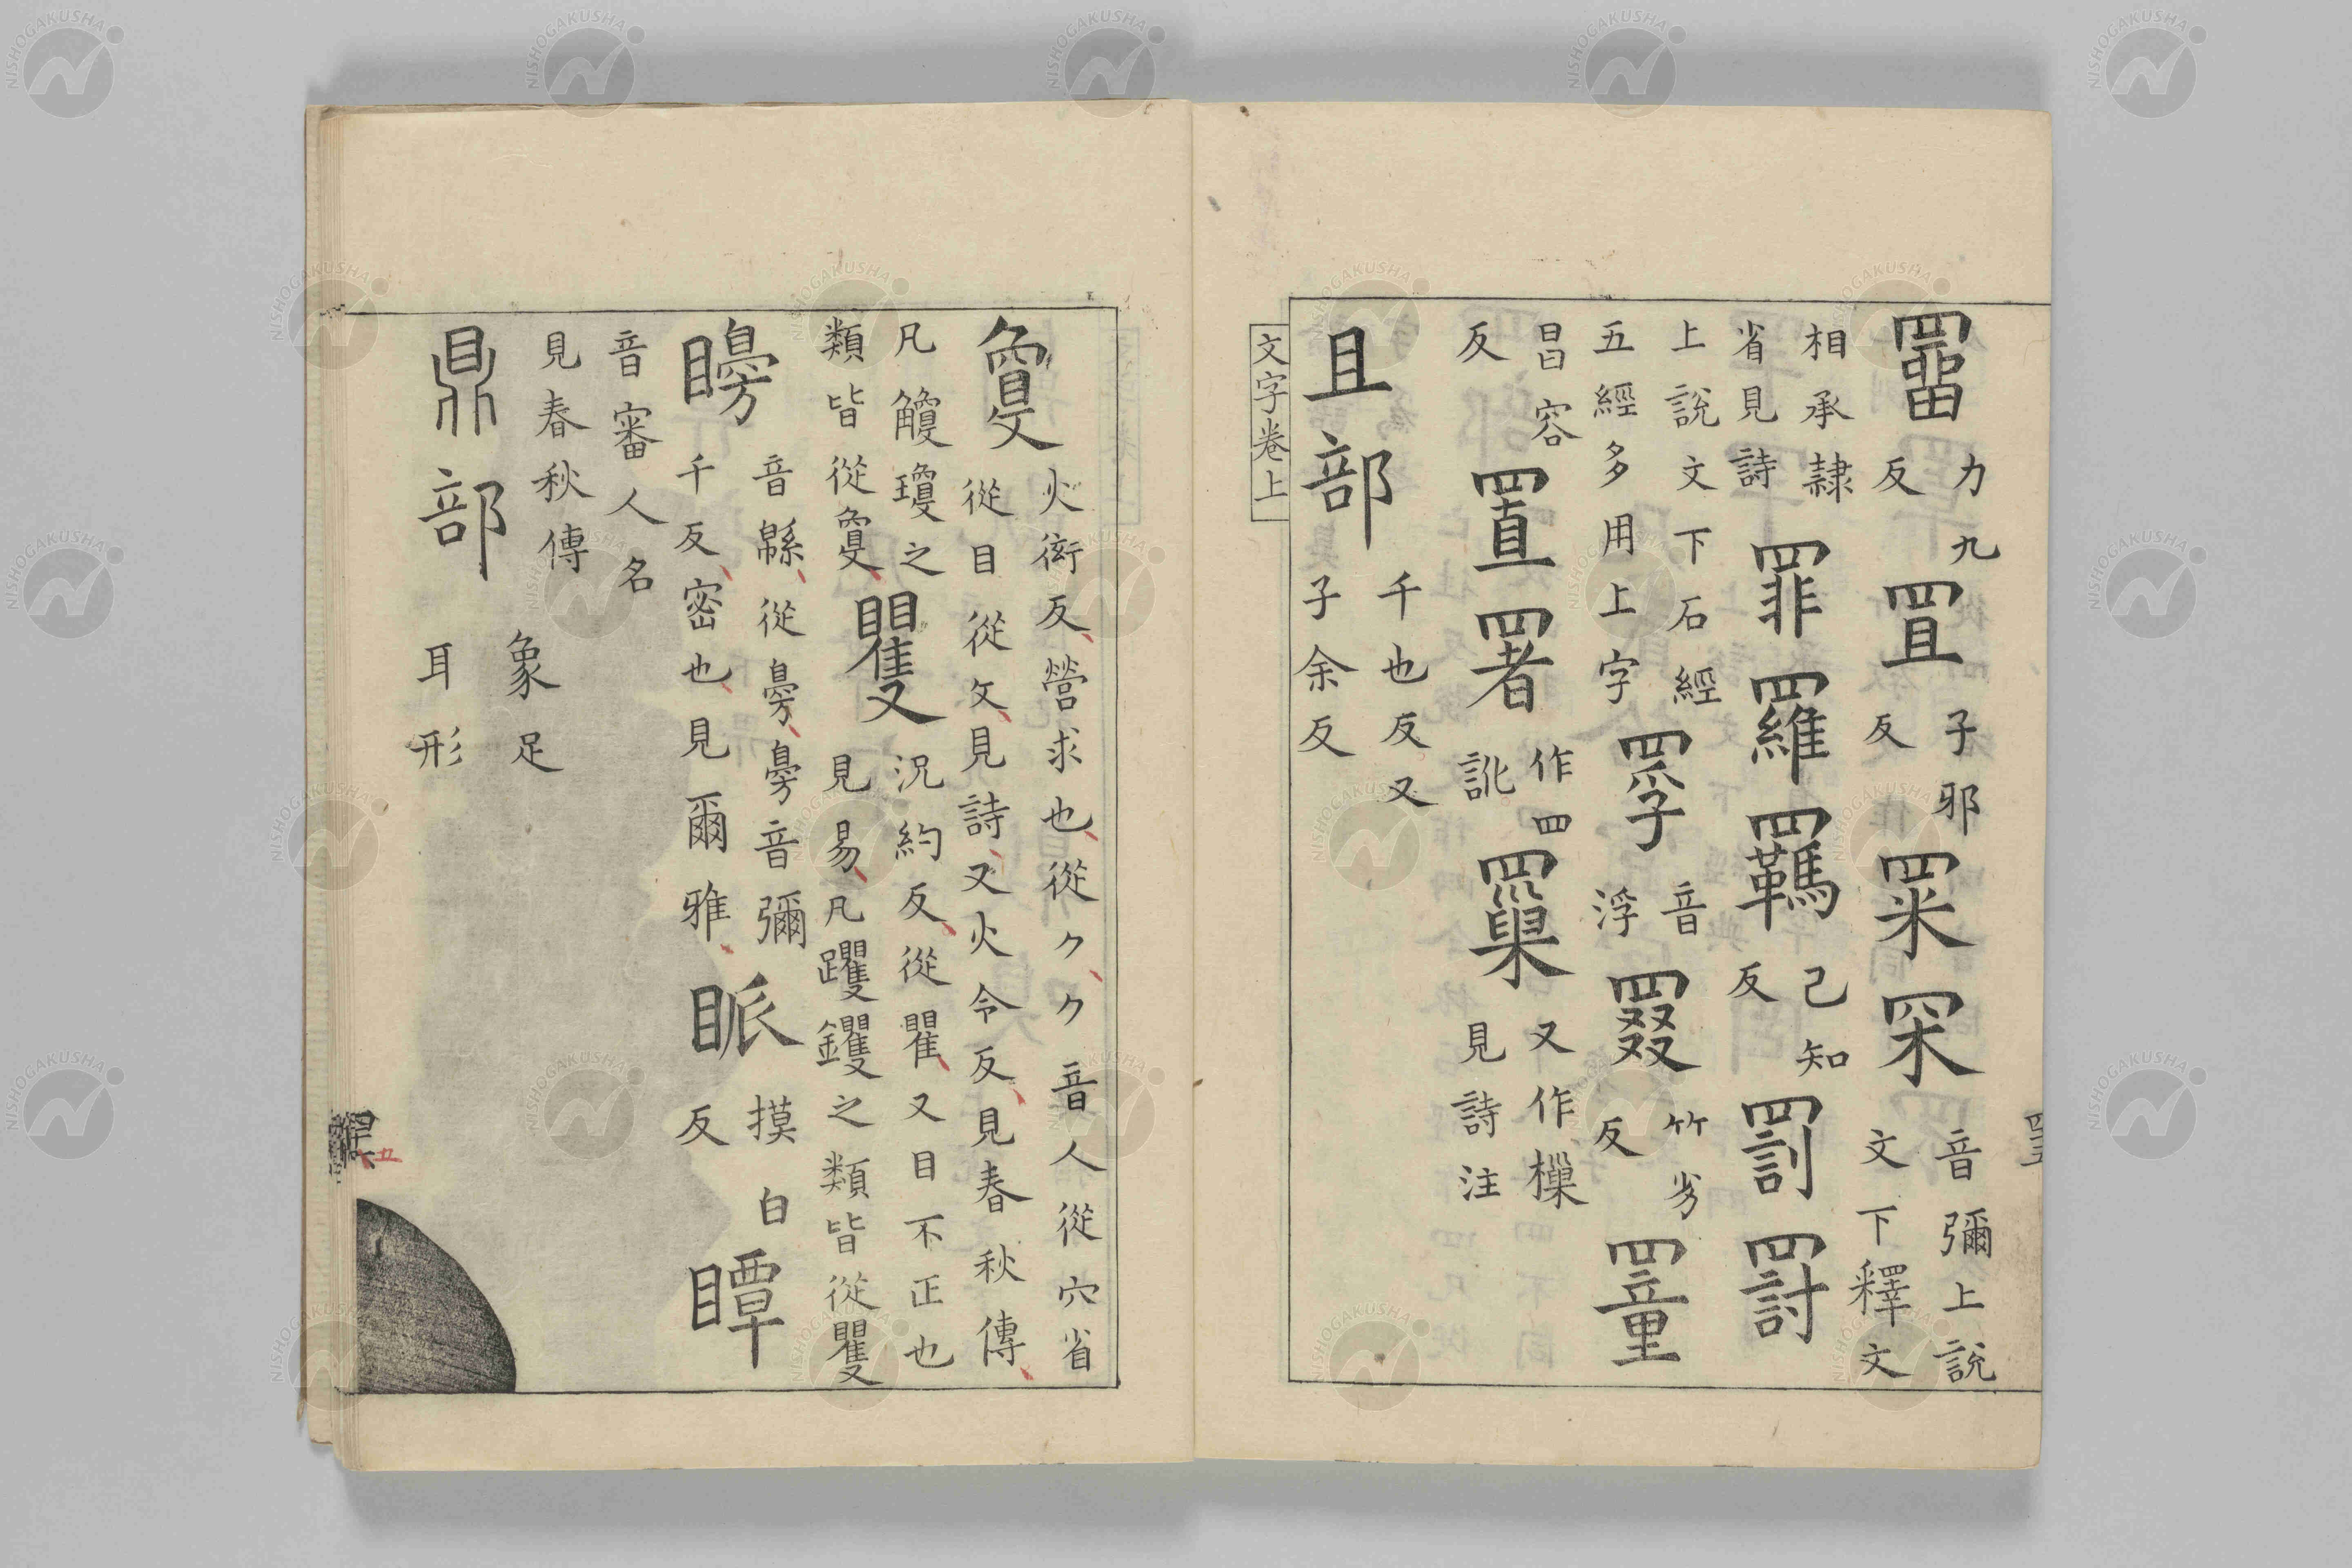 罶 力九反 罝 子邪反 罙 罙 音彌上說文下釋文
相承隸省見詩 罪 羅 羈 己知反 罰 罸
上說文下石經五經多用上字 罦 音浮 罬 竹劣反 罿
昌容反 置 署 作四訛 罺 又作樔見詩注
且部 千也反又子余反
文字卷上
敻 火衒反營求也從ク ク音人從穴省從目從攵見詩又火令反見春秋傳
凡觼瓊之類皆從敻 矍 況約反從瞿又目不正也見易凡躩钁之類皆從矍
矏 音緜從臱臱音彌千反密也見爾雅 眽 摸白反 瞫
音審人名見春秋傳
鼎部 象足耳形
五
NISHOGAKUSHA